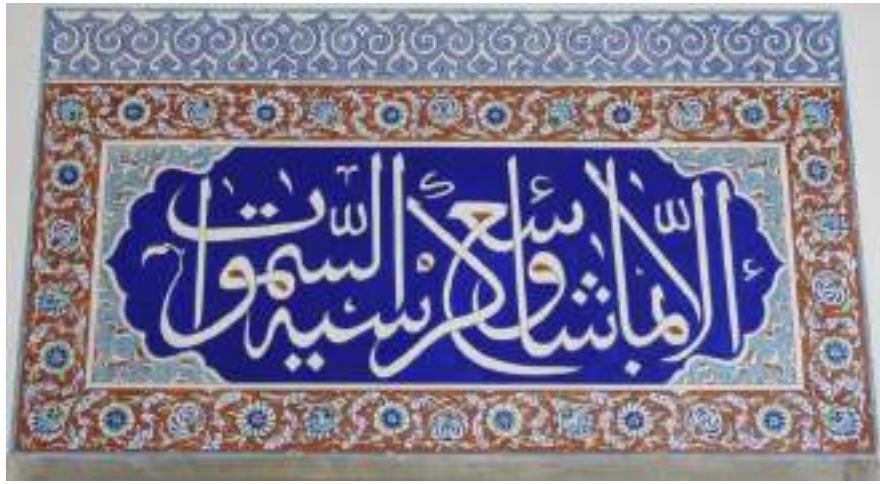 إلا بما شاء وسع كرسيه السموات